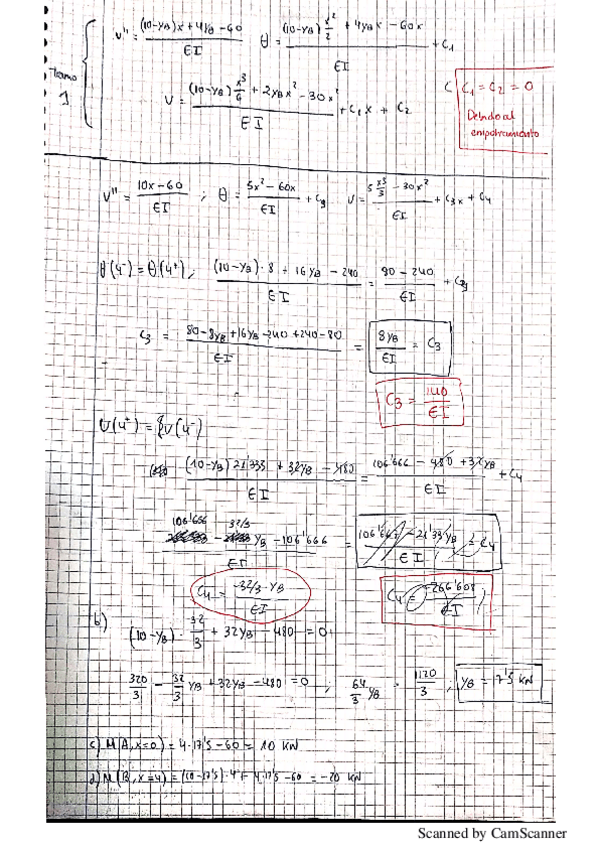 Tramo 1
v'' = ((10-yB)x + 4yB - 60)/EI   θ = ((10-yB) x²/2 + 4yBx - 60x)/EI + C1
v = ((10-yB) x³/6 + 2yBx² - 30x²)/EI + C1x + C2
C1 = C2 = 0
Debido al
empotramiento
v'' = (10x-60)/EI ; θ = (5x² - 60x)/EI + C3   v = (5 x³/3 - 30x²)/EI + C3x + C4
θ(4⁻) = θ(4⁺), ((10-yB)·8 + 16yB - 240)/EI = (80 - 240)/EI + C3
C3 = (80 - 8yB + 16yB - 240 + 240 - 80)/EI = 8yB/EI = C3
C3 = 140/EI
v(4⁺) = v(4⁻)
((10-yB) 21'333 + 32yB - 480)/EI = (106'666 - 480 + 32yB)/EI + C4
(106'666 - 32/3 yB - 106'666)/EI = (106'667 - 21'33yB)/EI = C4
C4 = (-32/3·yB)/EI
C4 =
b)
(10-yB)·32/3 + 32yB - 480 = 0
320/3 - 32/3 yB + 32yB - 480 = 0 ; 64/3 yB = 1120/3 ; yB = 17'5 kN
c) M(A, x=0) = 4·17'5 - 60 = 10 kN
d) M(B, x=4) = (10-17'5)·4 + 4·17'5 - 60 = -20 kN
Scanned by CamScanner